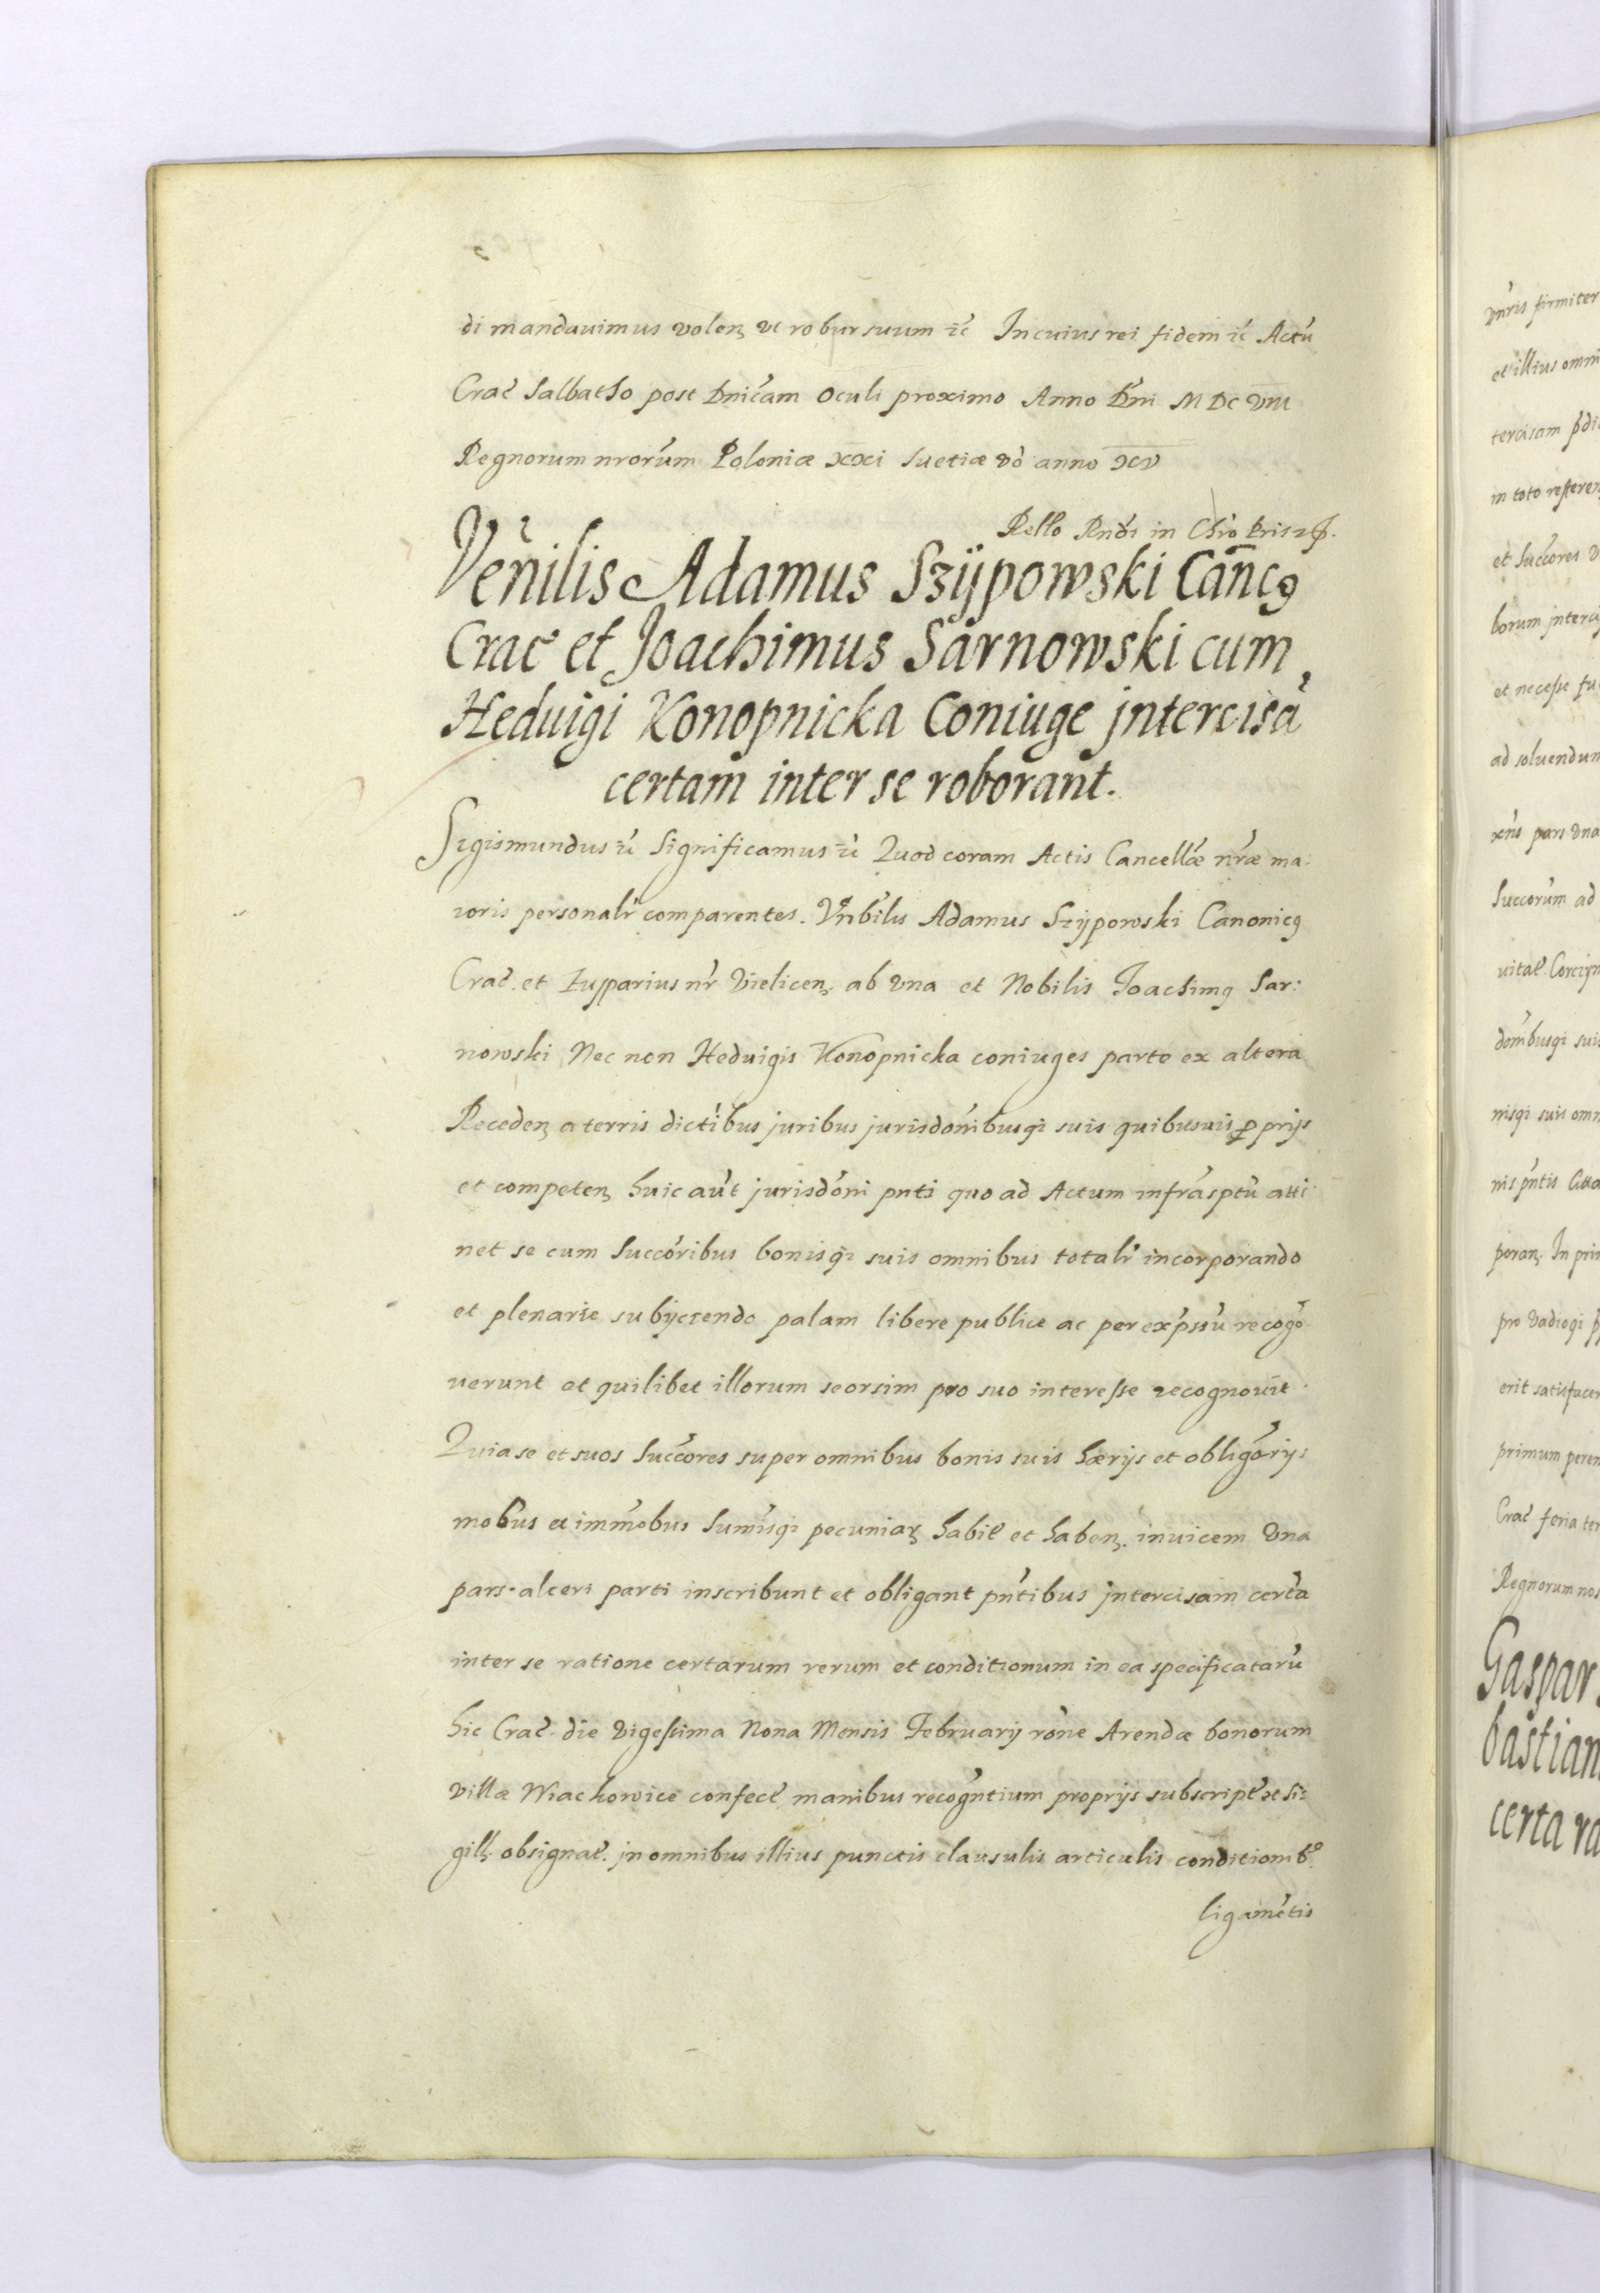 di mandauimus volenꝫ ut robur suum ꝛc̃ In cuius rei fidem ꝛc̃ Actũ
Crac̃ Sabbatho post Dnicam Oculi proximo Anno Dñi MDC VIII
Regnorum nrorum Poloniæ xxi Suetiæ vo anno xv
Rello Rndi in Chro Pris ꝛc̃.
Venilis Adamus Szÿpowski Cancꝯ
Crac̃ et Joachimus Sarnowski cum
Heduigi Konopnicka Coniuge jntercisã
certam inter se roborant.
Sigismundus ꝛc̃ Significamus ꝛc̃ Quod coram Actis Cancellæ nræ ma-
ioris personalr comparentes. Vnbilis Adamus Szÿpowski Canonicꝯ
Crac̃. et Zupparius nr Vielicenꝫ ab vna et Nobilis Joachimꝯ Sar:
nowski Nec non Heduigis Konopnicka coniuges parte ex altera
Recedenꝫ a terris dictibus juribus jurisdonibusqꝫ suis quibusuis ꝓprijs
et competenꝫ huic aut jurisdoni pnti quo ad Actum infrasptũ atti
net se cum Succoribus bonisqꝫ suis omnibus totalr incorporando
et plenarie subijciendo palam libere publice ac per expssũ recogo
uerunt et quilibet illorum seorsim pro suo interesse recognouit
Quia se et suos Succores super omnibus bonis suis hærijs et obligorijs
mobus et immobus Sumisqꝫ pecuniarꝫ habit̃ et habenꝫ. inuicem vna
pars alteri parti inscribunt et obligant pntibus jntercisam certã
inter se ratione certarum rerum et conditionum in ea specificatarũ
hic Crac̃. die vigesima Nona Mensis Februarij rone Arendæ bonorum
villæ Wiackowice confect̃ manibus recogntium proprijs subscript̃ et si:
gillꝫ obsignat̃. jn omnibus illius punctis clausulis articulis conditionibꝯ
ligamẽtis
vnris firmiter
et illius omni
tercisam pdi
in toto
et Succores v
borum jnterci
et necesse fu
ad soluendum
pars vna
Succorum ad
donibusqꝫ suis
nisqꝫ suis omn
nis pntis
In pri
pro vadioqꝫ
erit satisfacer
primum perem
Crac̃ feria ter
Regnorum nos
Gaspar
bastian
certa ra